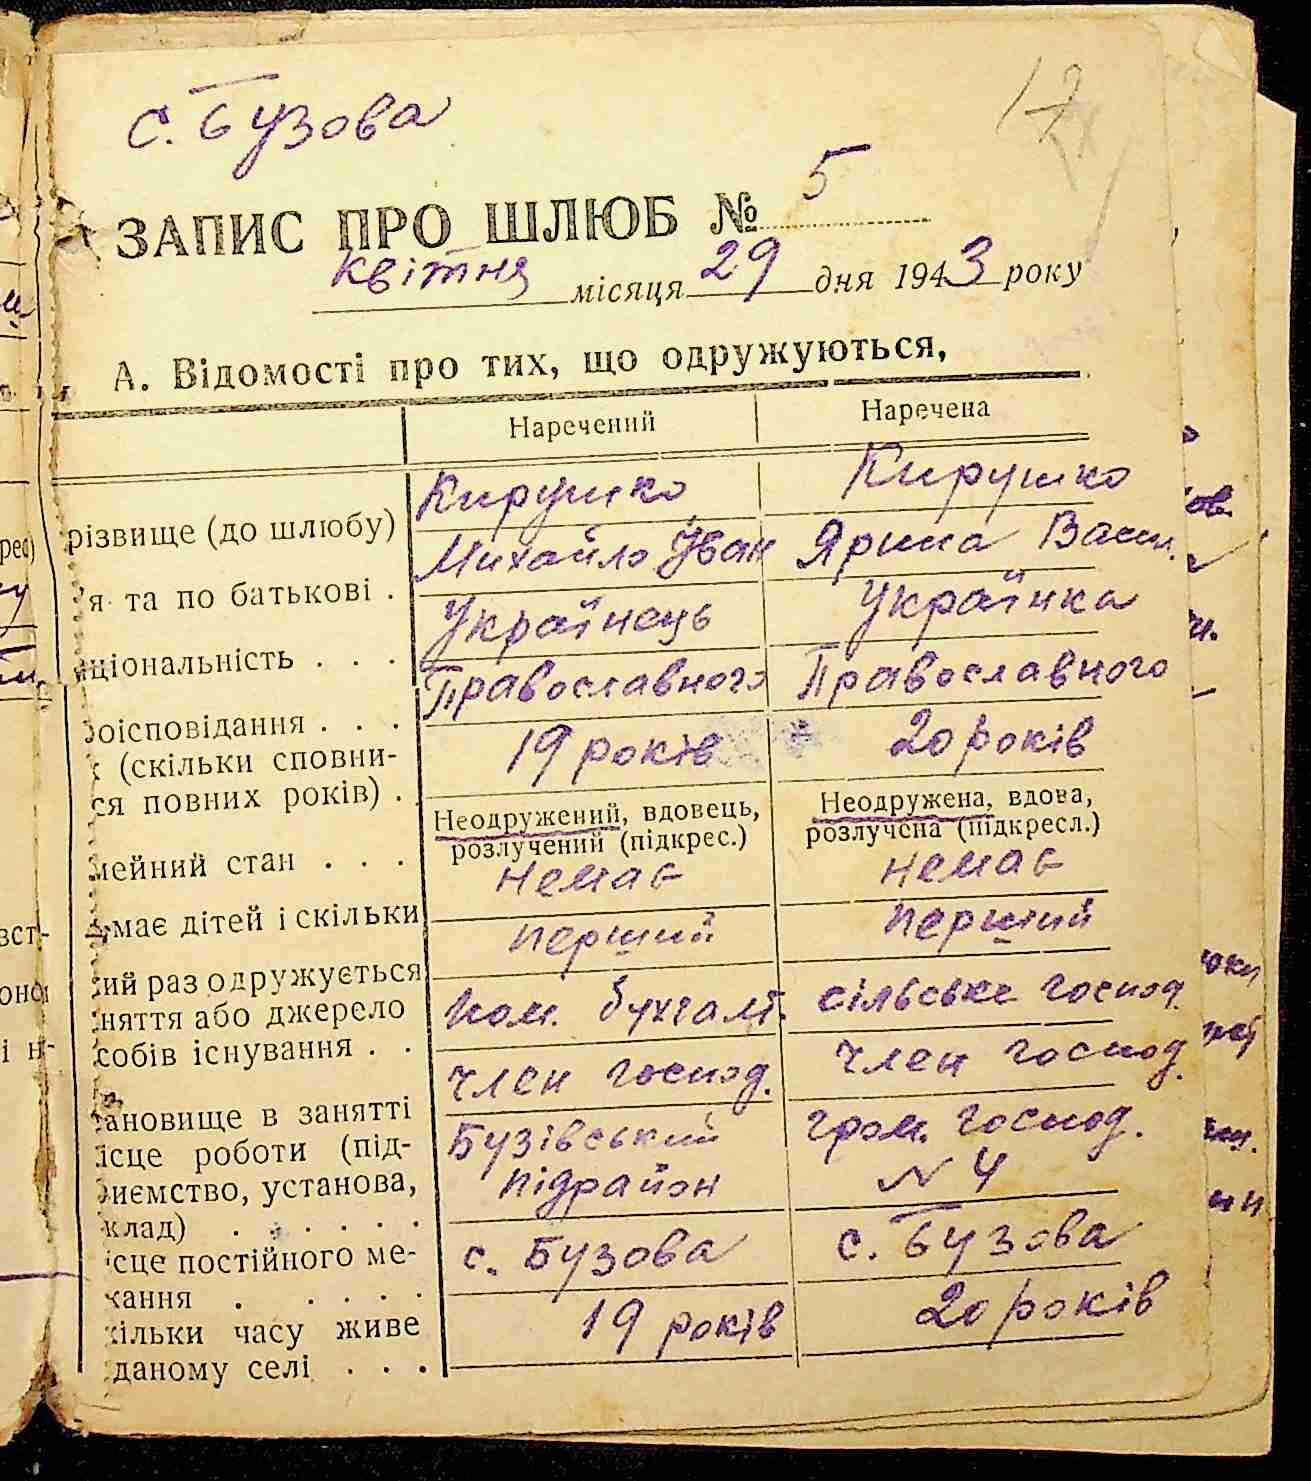 с. Бузова
17
ЗАПИС ПРО ШЛЮБ № 5
квітня місяця 29 дня 1943 року
А. Відомості про тих, що одружуються,
Наречений Наречена
різвище (до шлюбу) Кирушко Кирушко
'я та по батькові . Михайло Іван Ярина Васил.
аціональність . . . Українець Українка
роісповідання . . . Православного Православного
к (скільки сповни-
ся повних років) . 19 років 20 років
мейний стан . . . Неодружений, вдовець, розлучений (підкрес.) Неодружена, вдова, розлучена (підкресл.)
має дітей і скільки немає немає
кий раз одружується перший перший
няття або джерело
собів існування . . пом. бухгалт. сільське господ.
ановище в занятті член господ. член господ.
ісце роботи (під-
риємство, установа,
клад) . . . . . . Бузівський підрайон гром. господ. № 4
ісце постійного ме-
кання . . . . . с. Бузова с. Бузова
кільки часу живе
даному селі . . . 19 років 20 років